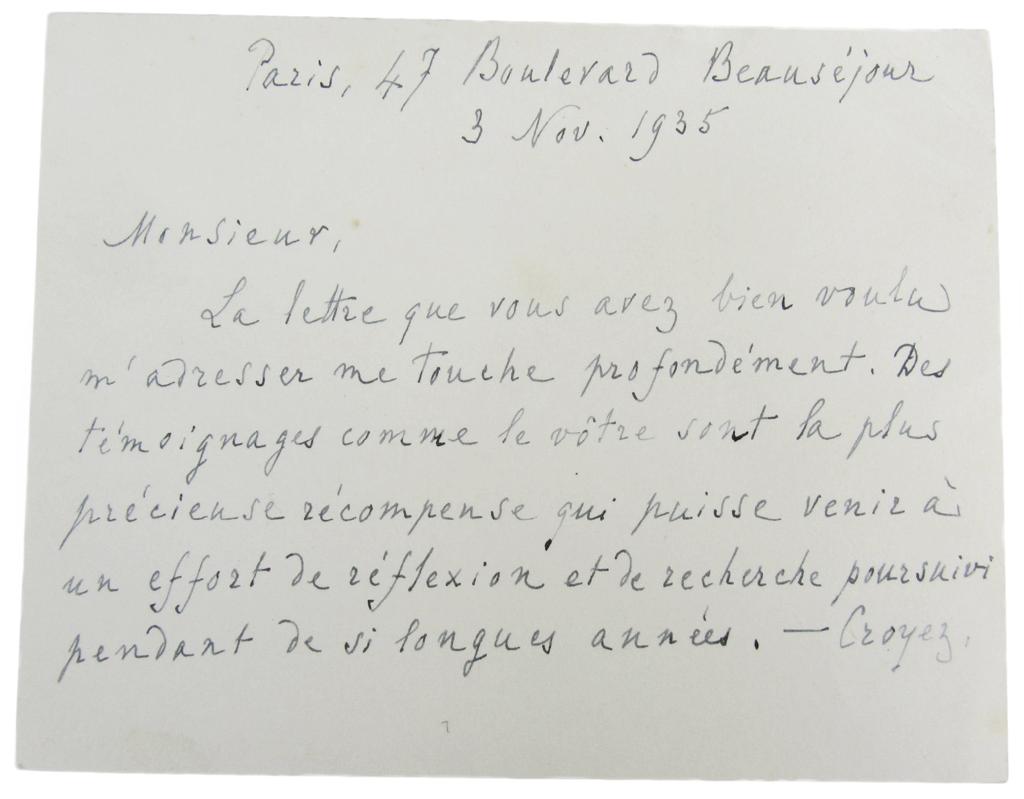 Paris, 47 Boulevard Beauséjour
3 Nov. 1935
Monsieur,
La lettre que vous avez bien voulu
m'adresser me touche profondément. Des
témoignages comme le vôtre sont la plus
précieuse récompense qui puisse venir à
un effort de réflexion et de recherche poursuivi
pendant de si longues années. — Croyez,